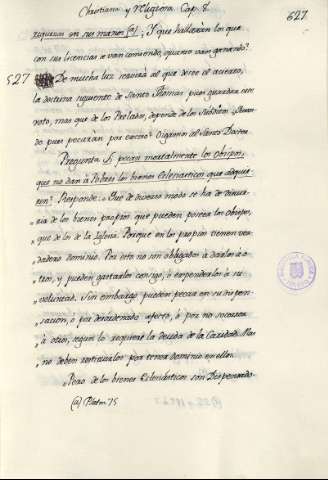 Christiana y Religiosa Cap. 8.
627
pusieron en sus manos (a); Y que hallaràn los que
con sus licencias se van comiendo, quanto van ganando?
527 De mucha luz servirà al que desee el acierto,
la doctrina siguiente de Santo Thomas pues guardara con
voto, mas que de los Prelados, depende de los Subditos. Quan-
do pues pecaràn por exceso? Oigamos al Santo Doctor.
Pregunta Si pecan mortalmente los Obispos,
que no dan à Pobres los bienes Eclesiasticos que adquie-
ren? Responde: Que de diverso modo se ha de discur-
rir de los bienes propios que pueden poseer los Obispos,
que de los de la Iglesia. Porque en los propios tienen ver-
dadero dominio. Por esto no son obligados à darlos à o-
tros, y pueden gastarlos consigo, ò expenderlos à su
voluntad. Sin embargo pueden pecar en su dispen-
sacion, ò por desordenado afecto, ò por no socorrer
à otros, segun lo requiere la deuda de la Caridad. Mas
no deben restituirlos por tener dominio en ellos.
Pero de los bienes Eclesiasticos son Dispensado-
(a) Psalm. 75